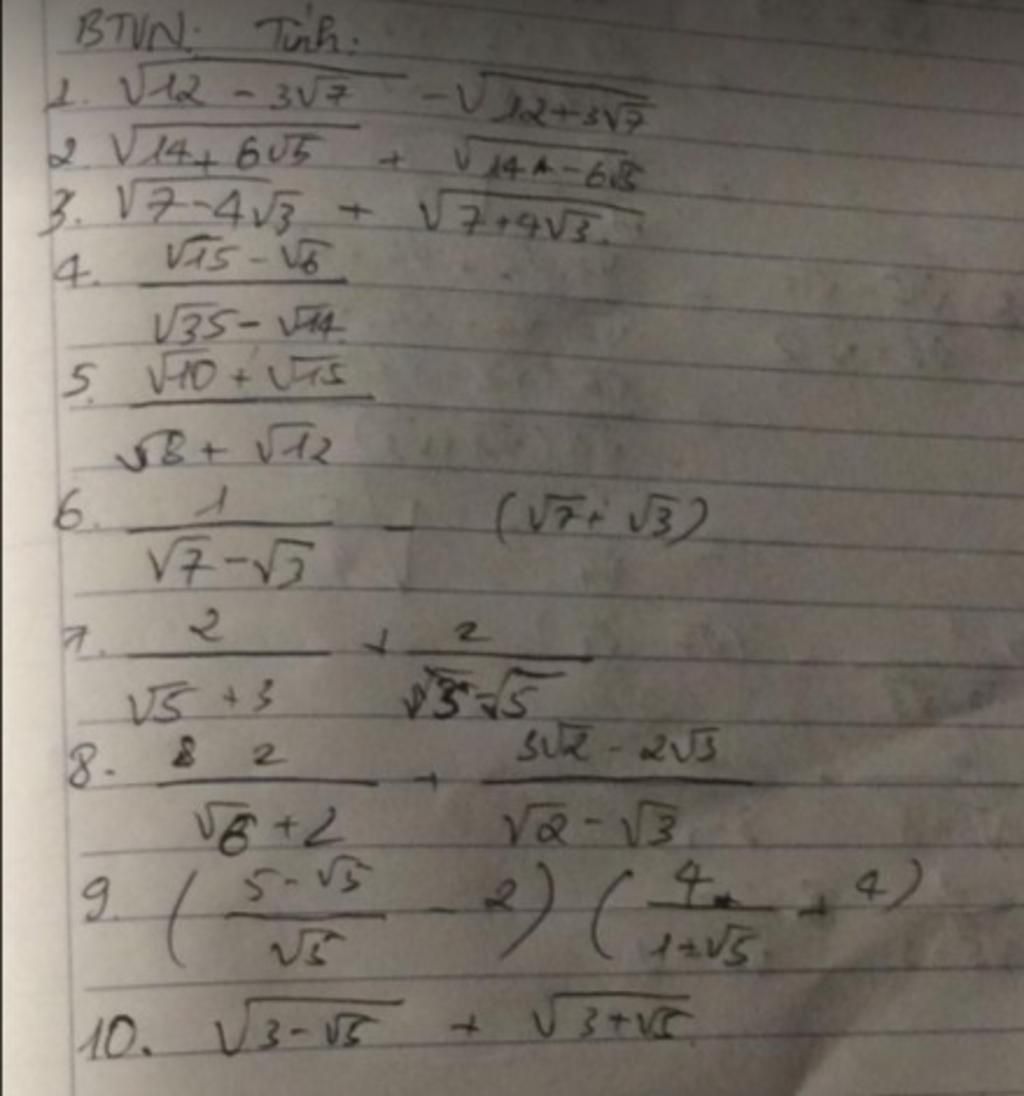 BTVN: Tính:
1. √(12 - 3√7) - √(12+3√7)
2 √(14+6√5) + √(14-6√5)
3. √(7-4√3) + √(7+4√3).
4. (√15 - √6)/(√35 - √14)
5. (√10 + √15)/(√8 + √12)
6. 1/(√7 - √3) - (√7 + √3)
7. 2/(√5 + 3) + 2/(√3 - √5)
8. 2/(√6 + 2) + (3√2 - 2√3)/(√2 - √3)
9. ((5-√5)/√5 - 2) (4/(1+√5) + 4)
10. √(3-√5) + √(3+√5)